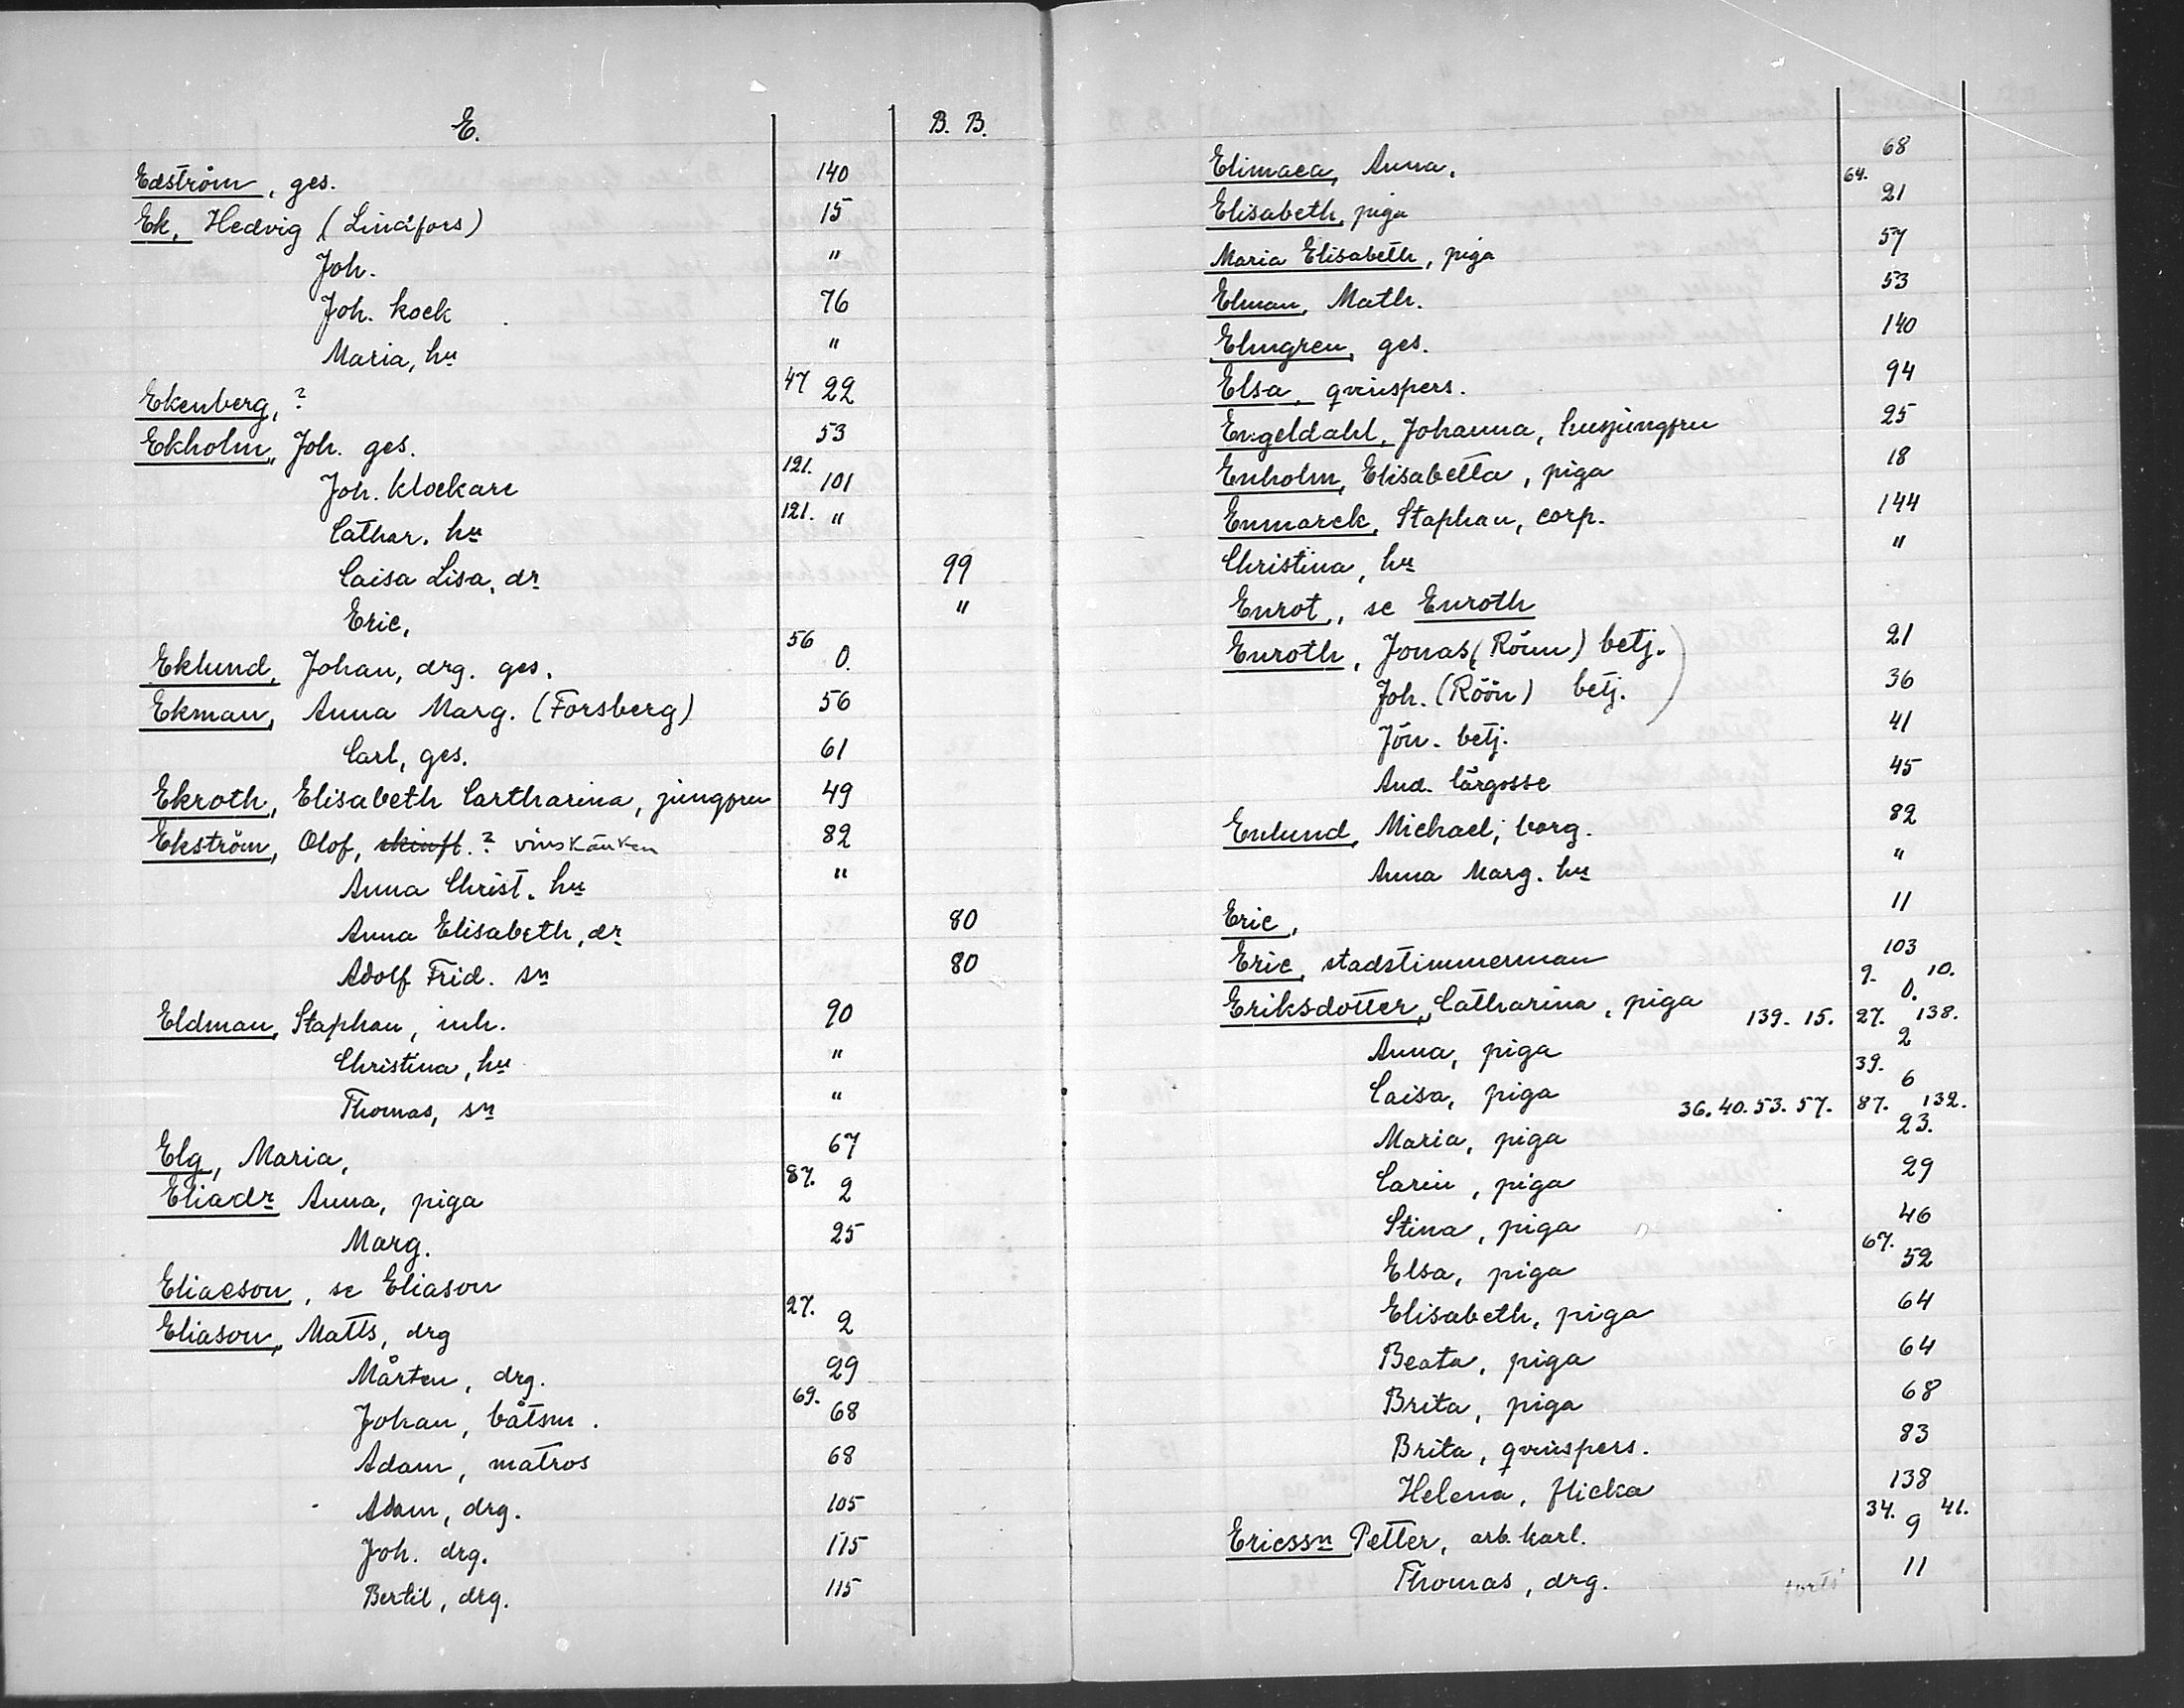 E. B. B.
Edström, ges. 140
Ek, Hedvig (Lindfors) 15
Joh. "
Joh. kock 76
Maria, hu "
Ekenberg, ? 47 22
Ekholm, Joh. ges. 53
Joh. klockare 121. 101
Cathar. hu 121. "
Caisa Lisa, dr 99
Eric, "
Eklund, Johan, drg. ges. 56 0.
Ekman, Anna Marg. (Forsberg) 56
Carl, ges. 61
Ekroth, Elisabeth Cartharina, jungfru 49
Ekström, Olof, ? vinskänken 82
Anna Christ. hu "
Anna Elisabeth, dr 80
Adolf Frid. sn 80
Eldman, Staphan, inh. 90
Christina, hu "
Thomas, sn "
Elg, Maria, 67
Eliadr Anna, piga 87. 2
Marg. 25
Eliaeson, se Eliason
Eliason, Matts, drg 27. 2
Mårten, drg. 29
Johan, båtsm. 69. 68
Adam, matros 68
Adam, drg. 105
Joh. drg. 115
Bertil, drg. 115
Elimaea, Anna, 68
Elisabeth, piga 64. 21
Maria Elisabeth, piga 57
Elman, Math. 53
Elmgren, ges. 140
Elsa, qvinspers. 94
Engeldahl, Johanna, husjungfru 25
Enholm, Elisabetta, piga 18
Enmarck, Staphan, corp. 144
Christina, hu "
Enrot, se Enroth
Enroth, Jonas (Rönn) betj. 21
Joh. (Röön) betj. 36
Jön. betj. 41
And. lärgosse 45
Enlund, Michael, borg. 82
Anna Marg. hu "
Eric, 11
Eric, stadstimmerman 103
Eriksdotter, Catharina, piga 139. 15. 9. 0. 10. 27. 138.
Anna, piga 2
Caisa, piga 39. 6
36. 40. 53. 57. 87. 132.
Maria, piga 23.
Carin, piga 29
Stina, piga 46
Elsa, piga 67. 52
Elisabeth, piga 64
Beata, piga 64
Brita, piga 68
Brita, qvinspers. 83
Helena, flicka 138
Ericssn Petter, arb. karl. 34. 9 41.
Thomas, drg. 11